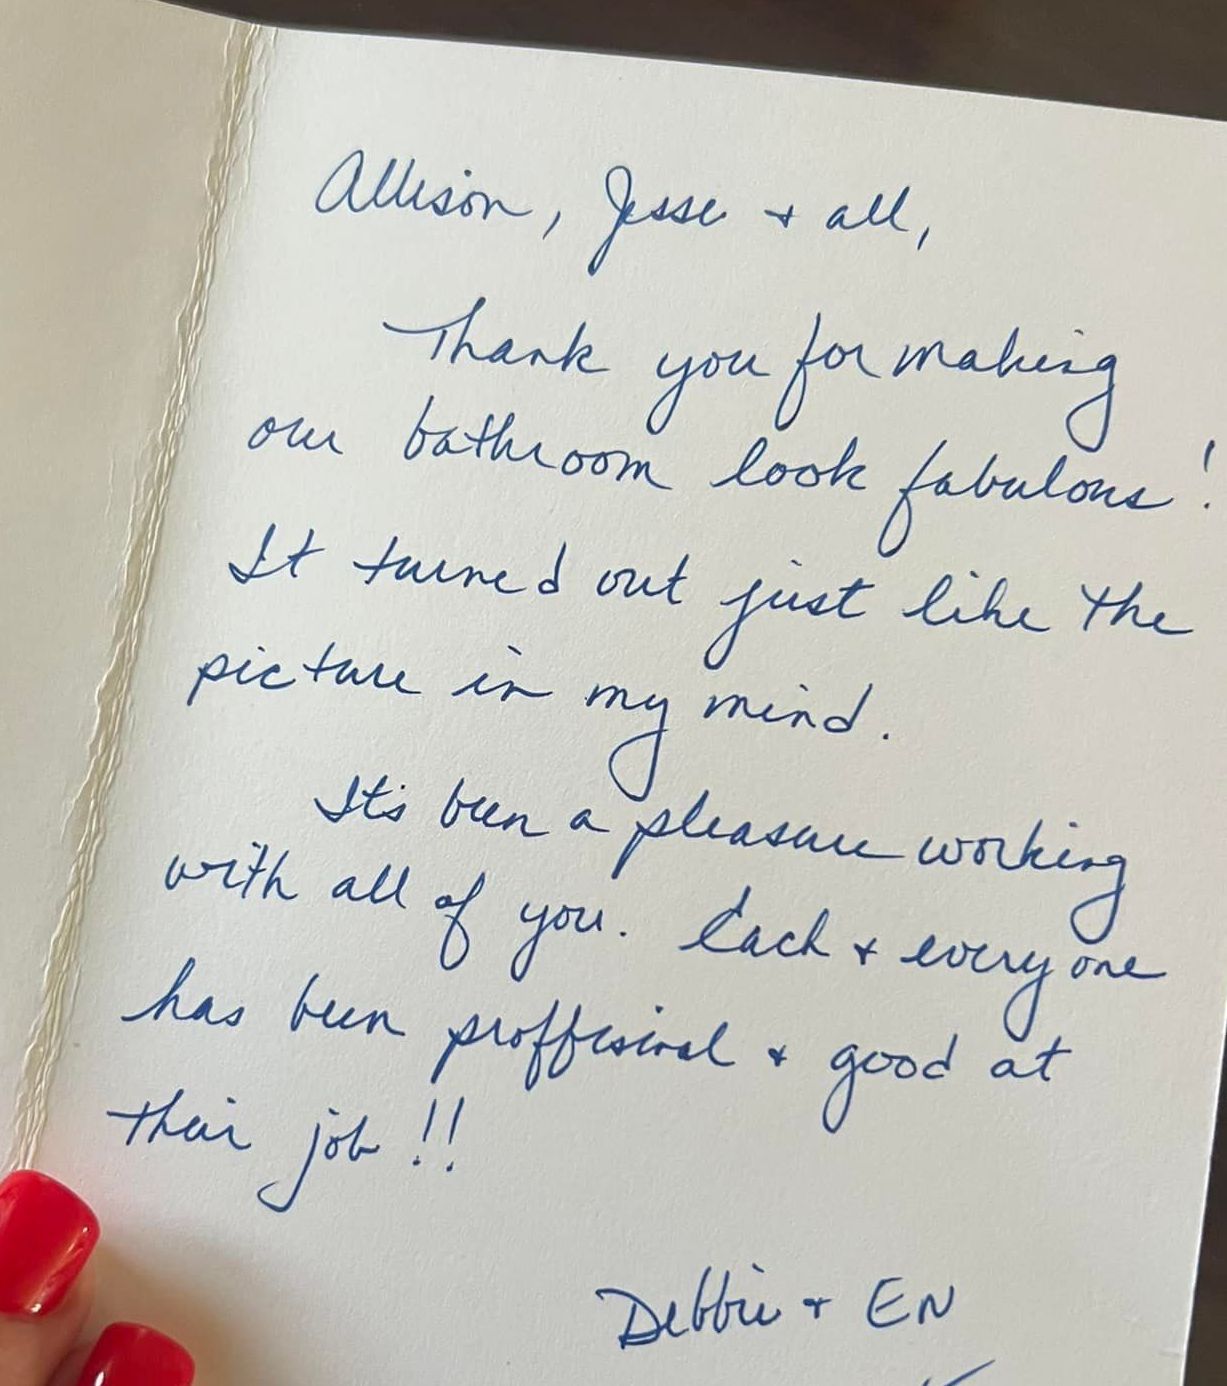 Allison, Jesse + all,
Thank you for making
our bathroom look fabulous!
It turned out just like the
picture in my mind.
It's been a pleasure working
with all of you. Each + everyone
has been proffesional + good at
their job!!
Debbie + EN